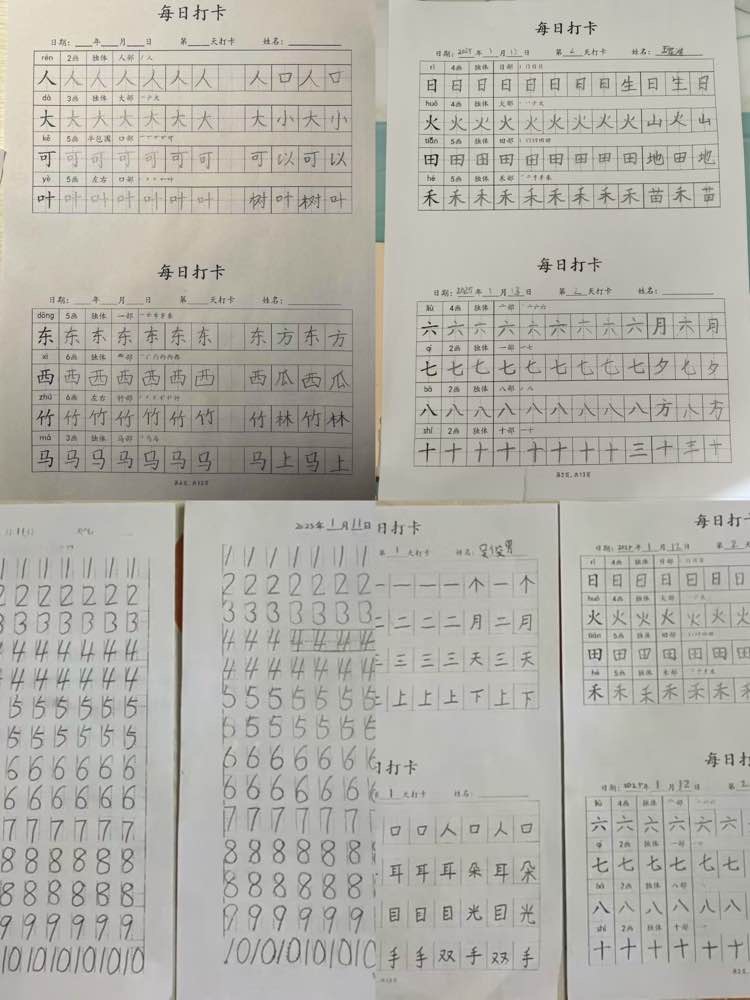 每日打卡
日期：____年____月____日 第____天打卡 姓名：________
rén 2画 独体 人部
人 人 人 人 人 人 人 人 口 人 口
dà 3画 独体 大部
大 大 大 大 大 大 大 大 小 大 小
kě 5画 半包围 口部
可 可 可 可 可 可 可 可 以 可 以
yè 5画 左右 口部
叶 叶 叶 叶 叶 叶 叶 树 叶 树 叶
每日打卡
日期：____年____月____日 第____天打卡 姓名：________
dōng 5画 独体 一部
东 东 东 东 东 东 东 东 方 东 方
xī 6画 独体 西部
西 西 西 西 西 西 西 西 瓜 西 瓜
zhú 6画 左右 竹部
竹 竹 竹 竹 竹 竹 竹 竹 林 竹 林
mǎ 3画 独体 马部
马 马 马 马 马 马 马 马 上 马 上
每日打卡
日期：2025年1月12日 第2天打卡 姓名：
rì 4画 独体 日部
日 日 日 日 日 日 日 日 生 日 生 日
huǒ 4画 独体 火部
火 火 火 火 火 火 火 火 火 山 火 山
tián 5画 独体 田部
田 田 田 田 田 田 田 田 田 地 田 地
hé 5画 独体 禾部
禾 禾 禾 禾 禾 禾 禾 禾 禾 苗 禾 苗
每日打卡
日期：2025年1月12日 第2天打卡 姓名：________
liù 4画 独体 亠部
六 六 六 六 六 六 六 六 六 月 六 月
qī 2画 独体 一部
七 七 七 七 七 七 七 七 七 夕 七 夕
bā 2画 独体 八部
八 八 八 八 八 八 八 八 八 方 八 方
shí 2画 独体 十部
十 十 十 十 十 十 十 十 三 十 三 十
第2页，共13页
1 1 1 1 1 1
2 2 2 2 2 2
3 3 3 3 3 3
4 4 4 4 4 4
4 4 4 4 4 4
5 5 5 5 5
5 5 5 5 5
6 6 6 6 6 6
6 6 6 6 6 6
7 7 7 7 7 7
8 8 8 8 8 8
8 8 8 8 8 8
9 9 9 9 9 9
10 10 10 10 10 10
2025年1月11日
1 1 1 1 1 1 1
2 2 2 2 2 2 2
3 3 3 3 3 3 3
4 4 4 4 4 4 4
4 4 4 4 4 4 4
5 5 5 5 5 5 5
5 5 5 5 5 5 5
6 6 6 6 6 6 6
6 6 6 6 6 6 6
7 7 7 7 7 7 7
8 8 8 8 8 8 8
8 8 8 8 8 8 8
9 9 9 9 9 9 9
10 10 10 10 10 10
日打卡
第1天打卡 姓名：
一 一 一 个 一 个
二 二 二 月 二 月
三 三 三 天 三 天
上 上 上 下 上 下
日打卡
1天打卡 姓名：________
口 口 人 口 人 口
耳 耳 耳 朵 耳 朵
目 目 目 光 目 光
手 手 双 手 双 手
每日打
日期：2025年1月12日 第2天
rì 4画 独体 日部
日 日 日 日 日 日 日
huǒ 4画 独体 火部
火 火 火 火 火 火 火
tián 5画 独体 田部
田 田 田 田 田 田 田
hé 5画 独体 禾部
禾 禾 禾 禾 禾 禾 禾
每日打
日期：2025年1月12日 第2
liù 4画 独体 亠部
六 六 六 六 六 六 六
qī 2画 独体 一部
七 七 七 七 七 七 七
bā 2画 独体 八部
八 八 八 八 八 八 八
shí 2画 独体 十部
十 十 十 十 十 十 十